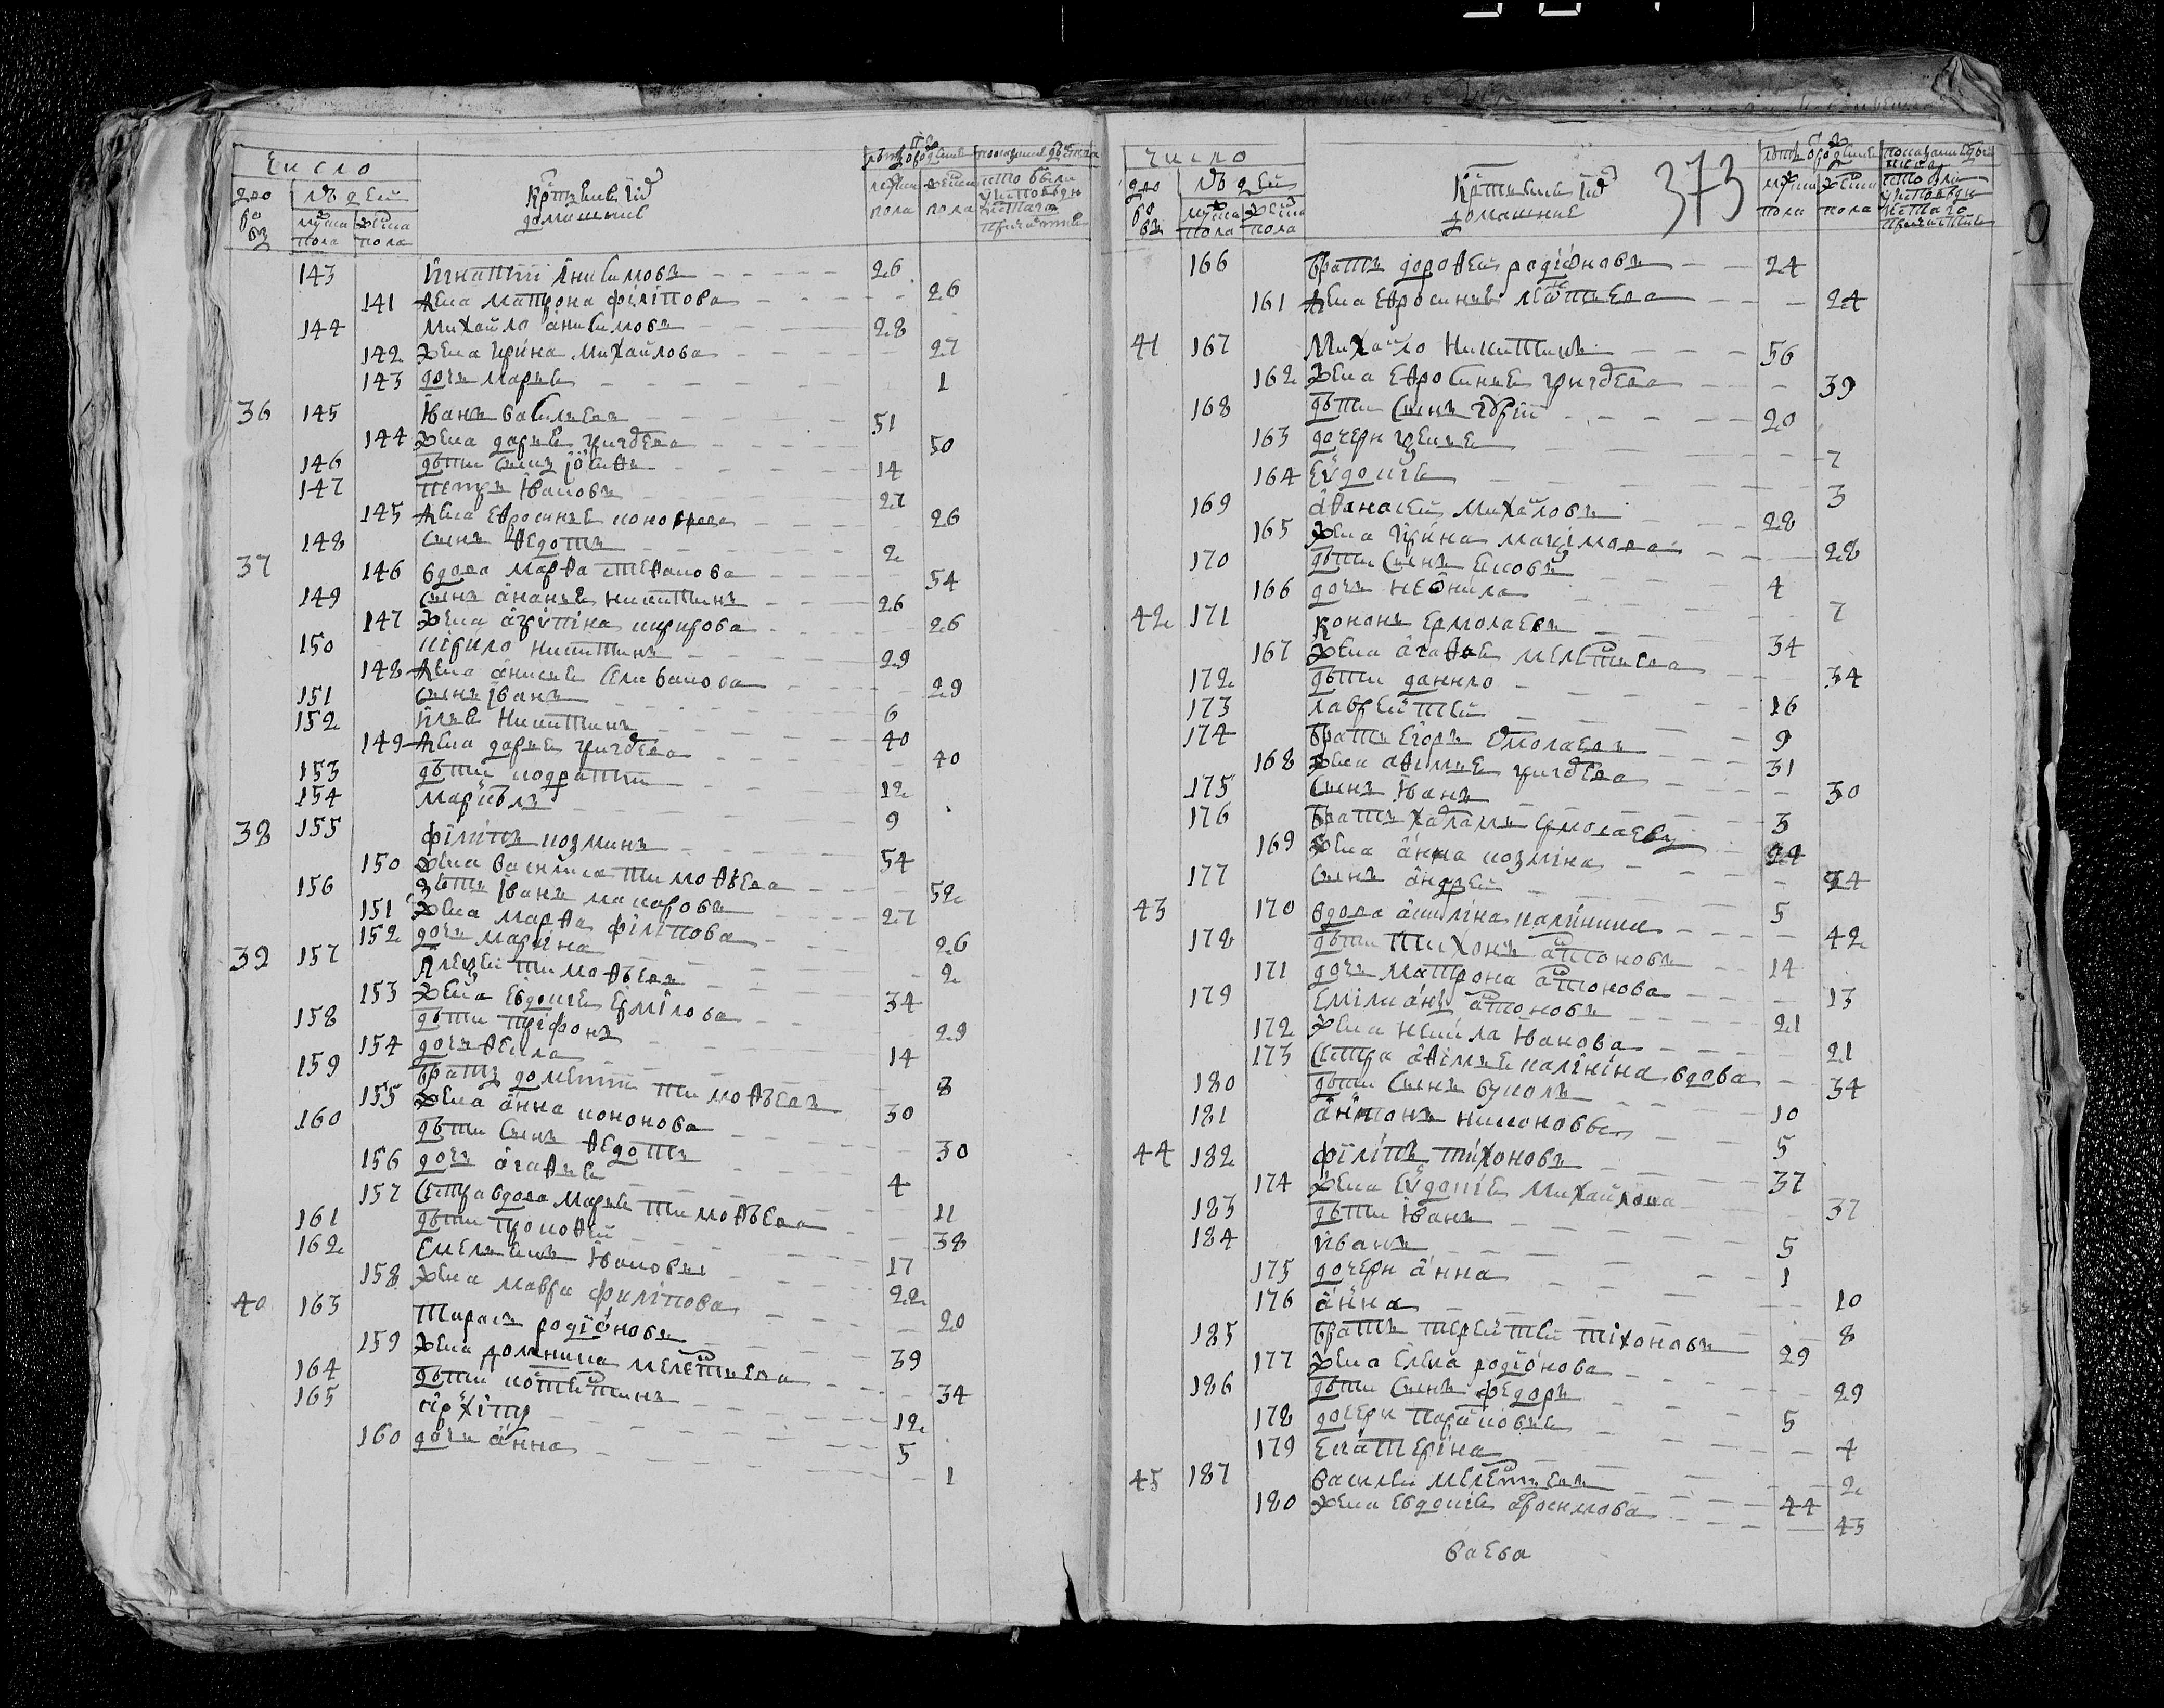 Число
Крестьяне и их домашние
дво ров
людей
мужска пола
женска пола
лета от рождения
мужска пола
женска пола
показание действа кто был у исповеди и святаго причастия
143 Игнатий Анисимовъ 26
141 жена Матрона Филипова 26
144 Михайло Анисимовъ 28
142 жена Ирина Михайлова 27
143 дочь Марья 1
36 145 Иванъ Васильевъ 51
144 жена Дарья Григорева 50
146 дети сынъ Иосифъ 14
147 Петръ Ивановъ 27
145 жена Евросинья Кононова 26
148 сынъ Федотъ 2
37 146 вдова Марфа Степанова 54
149 сынъ Ананья Никитинъ 26
147 жена Агрипина Кирилова 26
150 Кирило Никитинъ 29
148 жена Анисья Селиванова 29
151 сынъ Иванъ 6
152 Илья Никитинъ 40
149 жена Дарья Григорева 40
153 дети Кодратий 12
154 Маркелъ 9
38 155 Филипъ Козминъ 54
150 жена Василиса Тимофеева 52
156 зять Иванъ Макаровъ 27
151 жена Марфа Филипова 26
152 дочь Марина 2
39 157 Алексей Тимофеевъ 34
153 жена Евдокия Ермилова 29
158 дети Трифонъ 14
154 дочь Фекла 8
159 братъ Дометий Тимофеевъ 30
155 жена Анна Кононова 30
160 дети сынъ Федотъ 4
156 дочь Агафья 11
157 сестра вдова Марья Тимофеева 38
161 дети Прокофей 17
162 Емельянъ Ивановы 22
158 жена Мавра Филипова 20
40 163 Тарасъ Родионовъ 39
159 жена Домника Мелентьева 34
164 дети Костентинъ 12
165 Архипъ 5
160 дочь Анна 1
373
Число
Крестьяне и их домашние
дво ров
людей
мужска пола
женска пола
лета от рождения
мужска пола
женска пола
показание действа кто был у исповеди и святаго причастия
166 братъ Дорофей Родионовъ 24
161 жена Евросинья Леонтьева 24
41 167 Михайло Никитинъ 56
162 жена Евросинья Григорева 39
168 дети сынъ Юрий 20
163 дочери Ксенья 7
164 Евдокия 3
169 Афанасей Михайловъ 28
165 жена Ирина Максимова 28
170 дети сынъ Яковъ 4
166 дочь Неонила 7
42 171 Кононъ Ермолаевъ 34
167 жена Агафья Мелентьева 34
172 дети Данило 16
173 Лаврентей 9
174 братъ Егоръ Ермолаевъ 31
168 жена Афимья Григорева 30
175 сынъ Иванъ 3
176 братъ Харламъ Ермолаевъ 24
169 жена Анна Козмина 24
177 сынъ Андрей 5
43 170 вдова Акилина Калинина 42
178 дети Тихонъ Антоновъ 14
171 дочь Матрона Антонова 13
179 Емилианъ Антоновъ 21
172 жена Ненила Иванова 21
173 сестра Афимья Калинина вдова 34
180 дети сынъ Вуколъ 10
181 Антонъ Никоновы 5
44 182 Филипъ Тихоновъ 37
174 жена Евдокия Михайлова 37
183 дети Иванъ 5
184 Иванъ 1
175 дочери Анна 10
176 Анна 8
185 братъ Терентей Тихоновъ 29
177 жена Елена Родионова 29
186 дети сынъ Федоръ 5
178 дочери Парасковья 4
179 Екатерина 2
45 187 Василей Мелентьевъ 44
180 жена Евдокия Абросимова 43